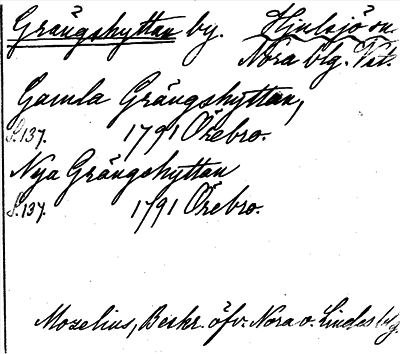 Grängshyttan by. Hjulsjö sn.
Nora blg. Vst.
Gamla Grängshyttan,
S.137. 1791 Örebro.
Nya Grängshyttan
S.137. 1791 Örebro.
Mozelius, Beskr. öfv. Nora o. Lindes blg.